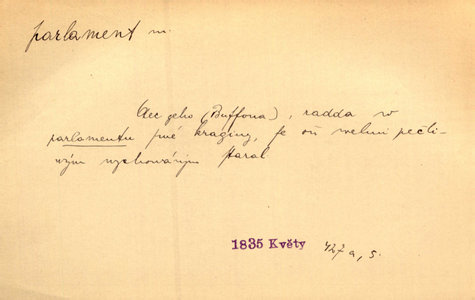 parlament m.
Otec geho (Buffona), radda w
parlamentu té kraginy, se oň welmi pečli-
wým wychowáním staral
1835 Květy 427 a, s.